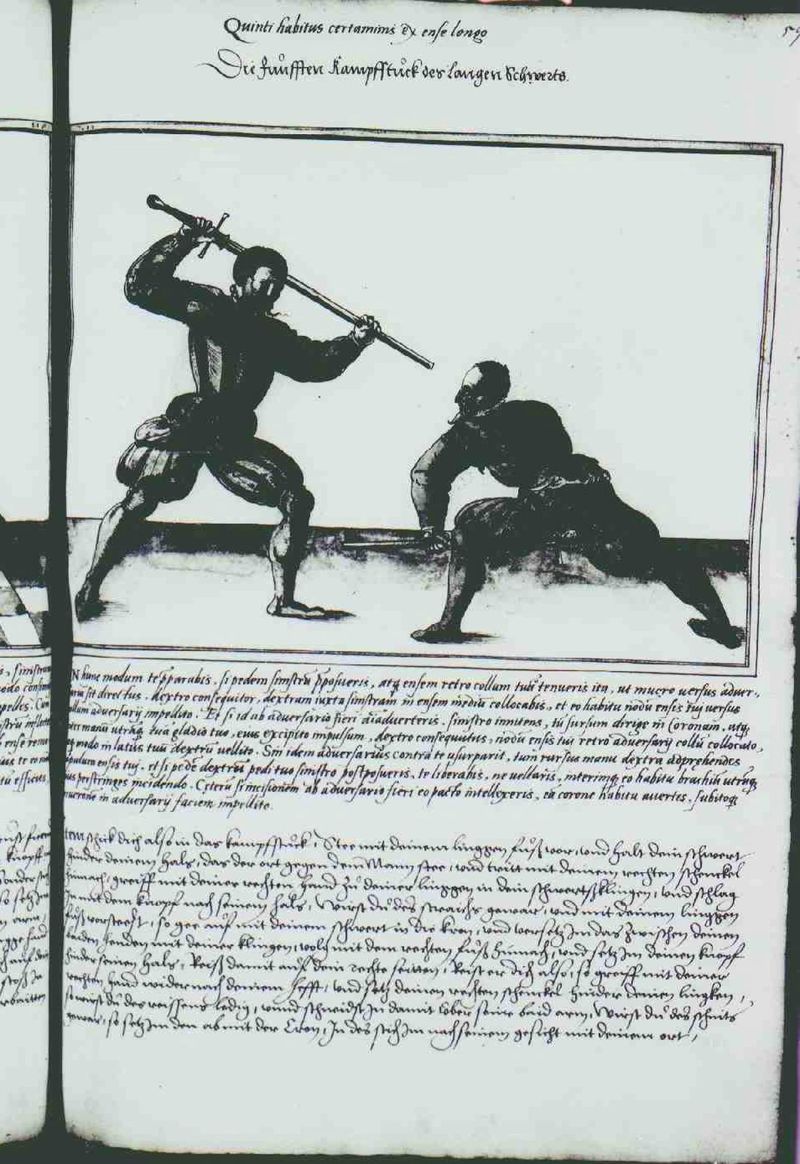 Quinti habitus certaminis ex ense longo
59
Die fünfften kampfstuck des langen Schwerts.
N hunc modum te pparabis, si pedem sinistrū pposueris, atq ensem retro collum tuū tenueris ita, ut mucro versus adver-
sariū sit directus, dextro consequitor, dextram iuxta sinistram in ensem mediū collocabis, et eo habitu nodū ensis tui versus
collum adversarij impellito. Et si id ab adversario fieri aīadverteris, sinistro innitens, tū sursum dirige in Coronam, atq
inter manū utrāq tua gladio tuo, eius excipito impulsum, dextro consequutus, nodū ensis tui retro adversarij collū collocato,
eo modo in latus tuū dextrū vellito. Sin idem adversarius contra te usurparit, tum rursus manu dextra adprehendes
capulum ensis tui, et si pedē dextrū pedi tuo sinistro postposueris, te liberabis, ne vellaris, interimq eo habitu brachiū utrūq
eius perstringes incidendo. Ceterū si incisionem ab adversario fieri eo pacto intellexeris, ea corone habitu avertes, subitoq
mucrone in adversarij faciem impellito.
Item schick dich also in das kampfstuck, Stee mit deinem linggen fuß vor, und halt dein schwert
hinder deinem hals, das der ort gegen dem Mann stee, und tritt mit deinem rechten schenckel
hinnach, greiff mit deiner rechten hand zu deiner linggen in dein schwerts klingen, und schlag
In mit dem knopf nach seinem hals, Wirst du des straichs gewar, und mit deinem linggen
fuß vorsteest, so gee auf mit deinem schwert in die kron, und versetz Im das zwischen deinen
baiden henden mit deiner klingen, volg mit dem rechten fuß hinnach, und setz Im deinen knopf
hinder seinen hals, Reiß damit auf dein rechte seitten, Reist er dich also, so greiff mit deiner
rechten hand wider nach deinem hefft, und setz deinen rechten schenckel hinder deinen lingken,
so wirst du des reissens ledig, unnd schneidst In damit uber seine baid arm, Wirst du des schnits
gewar, so setz Im den ab mit der Cron, In des stich Im nach seinem gesicht mit deinem ort,